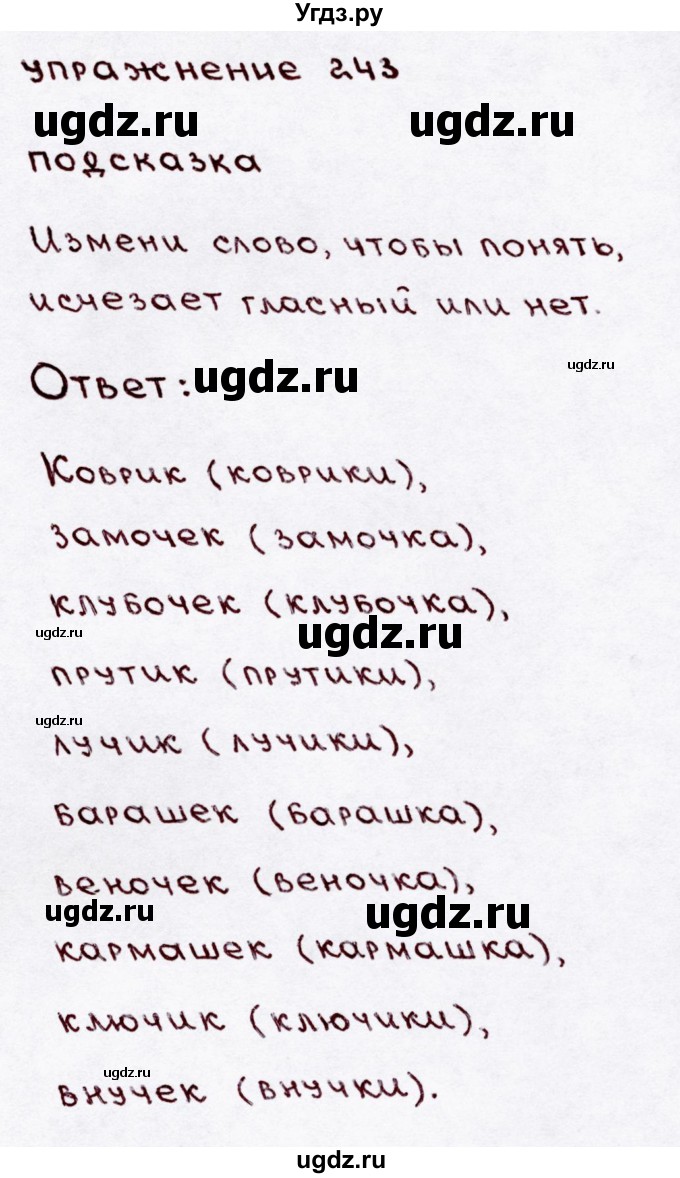 Угдз.ру
упражнение 243
ugdz.ru ugdz.ru
подсказка
Измени слово, чтобы понять,
исчезает гласный или нет.
ugdz.ru
Ответ: ugdz.ru
Коврик (коврики),
замочек (замочка),
клубочек (клубочка),
ugdz.ru ugdz.ru
прутик (прутики),
ugdz.ru
лучик (лучики),
барашек (барашка),
веночек (веночка),
ugdz.ru ugdz.ru
кармашек (кармашка),
ключик (ключики),
ugdz.ru
внучек (внучки).
ugdz.ru